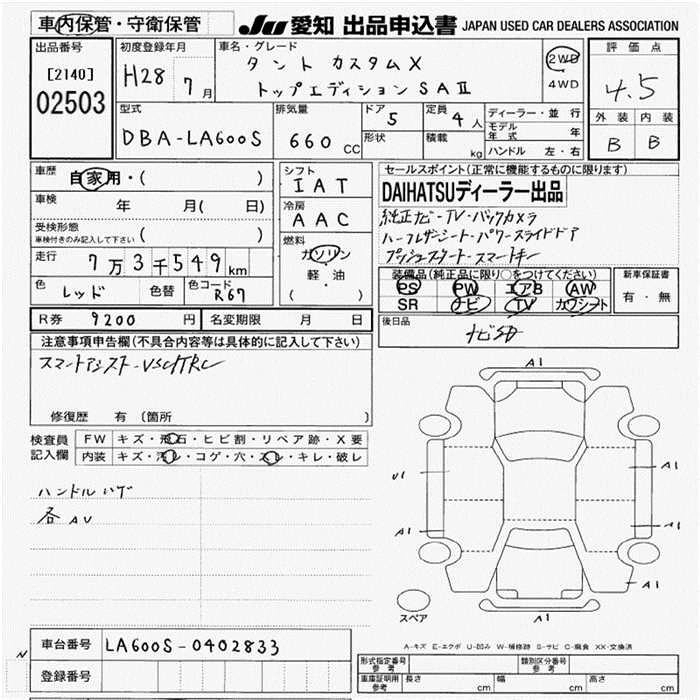 車内保管・守衛保管
JU 愛知 出品申込書 JAPAN USED CAR DEALERS ASSOCIATION
出品番号
[2140]
02503
初度登録年月
H28 7月
車名・グレード
タント カスタムX
トップエディション SAII
2WD
4WD
評価点
4.5
外装 内装
B B
型式
DBA-LA600S
排気量
660 CC
ドア 5
形状
定員 4人
積載 kg
ディーラー・並行
モデル年式 年
ハンドル 左・右
車歴
自家用・( )
車検
年 月( 日)
受検形態
車検付きのみ記入して下さい ( )
走行
7万3千549km
色 レッド 色替 色コード R67
シフト
IAT
冷房
AAC
燃料
ガソリン
軽・油
( )
セールスポイント(正常に機能するものに限ります)
DAIHATSUディーラー出品
純正ナビ・TV・バックカメラ
ハーフレザーシート・パワースライドドア
プッシュスタート・スマートキー
装備品(純正品に限り○をつけてください)
PS PW エアB AW
SR ナビ TV カワシート
新車保証書
有・無
R券 9200 円 名変期限 月 日
後日品
ナビSD
注意事項申告欄(不具合内容等は具体的に記入して下さい)
スマートアシスト・VSC/TRC
修復歴 有 (箇所 )
検査員記入欄
FW キズ・飛石・ヒビ割・リペア跡・X要
内装 キズ・汚レ・コゲ・穴・スレ・キレ・破レ
ハンドルハゲ
各AU
A1
U1
A1
A1
A1
A1
A1
スペア
A-キズ E-エクボ U-凹み W-補修跡 S-サビ C-腐食 XX-交換済
N
車台番号 LA600S-0402833
登録番号
形式指定番号 参考
類別区分番号 参考
車庫証明用 参考
長さ cm 幅 cm 高さ cm